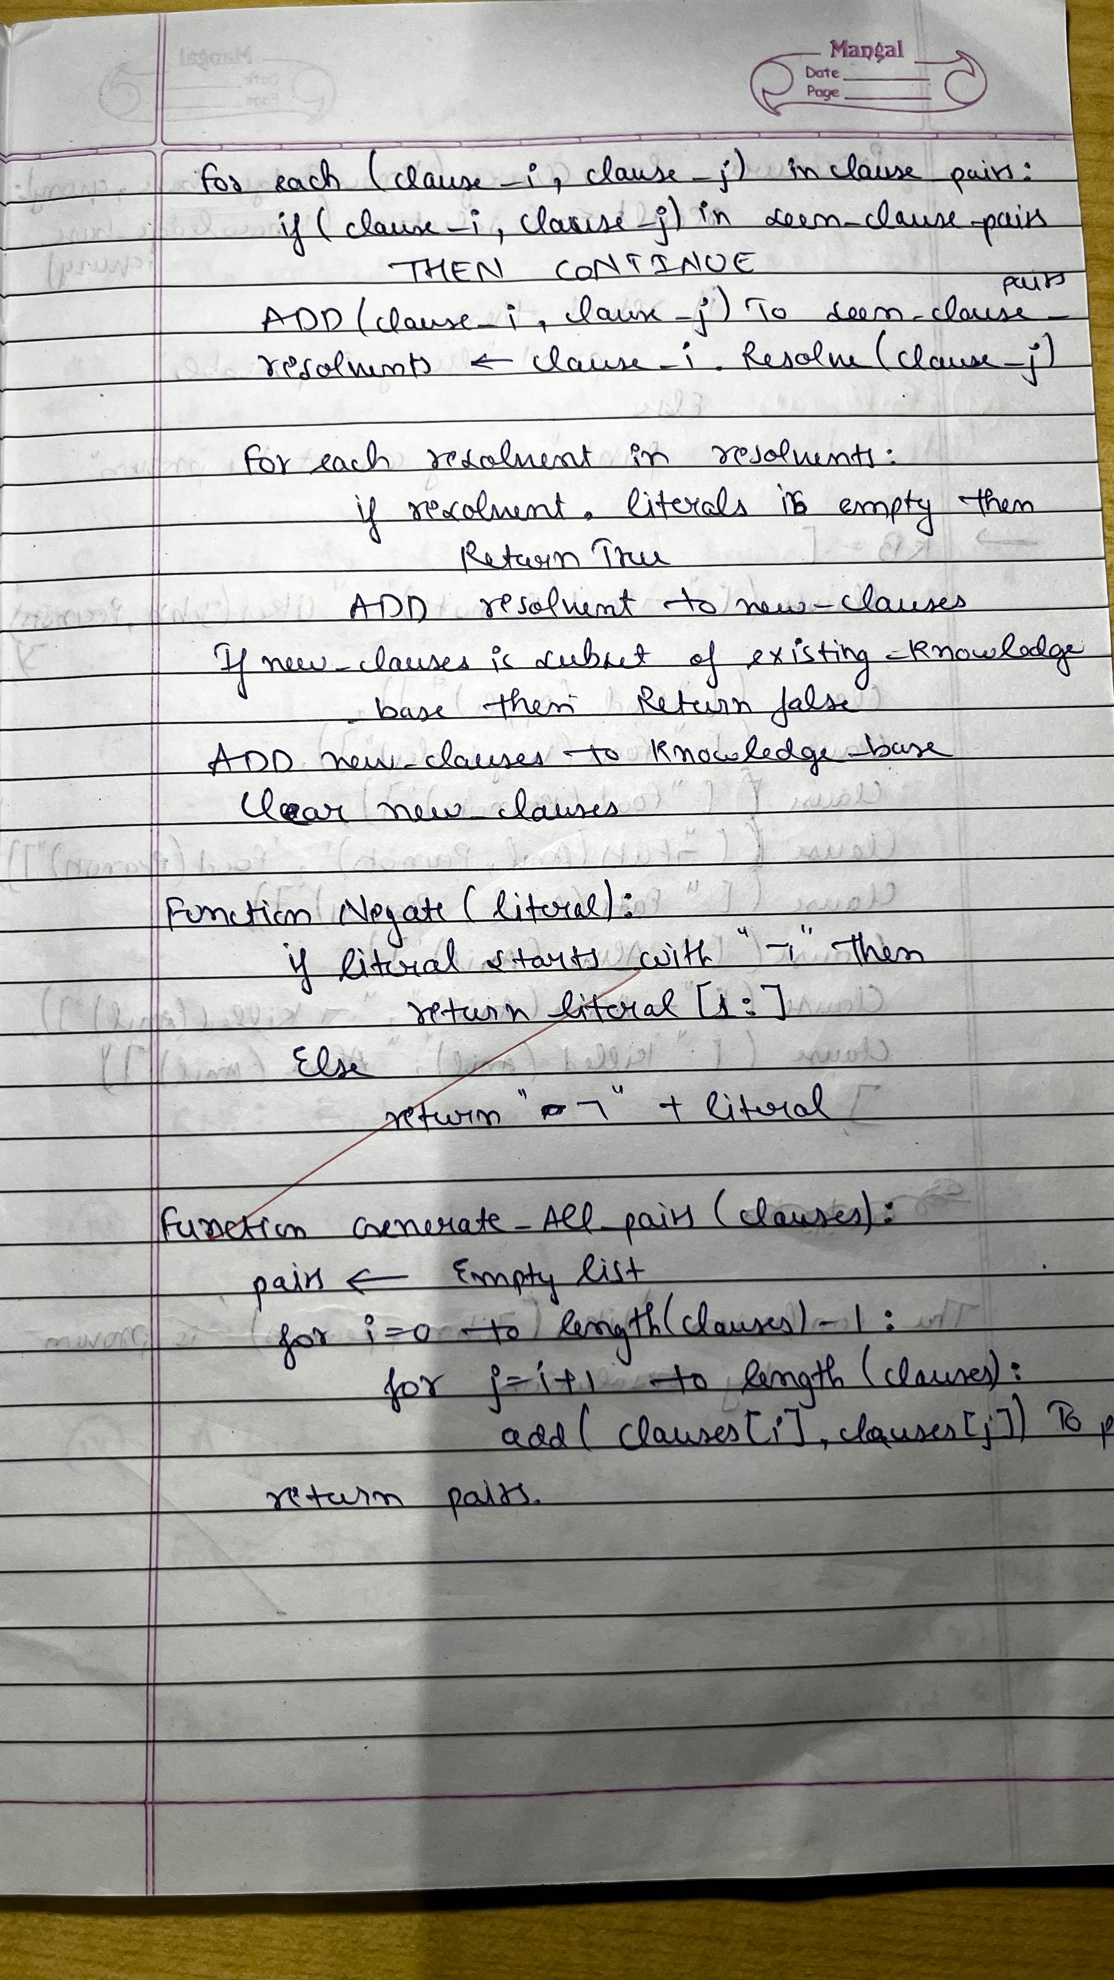 Mangal
Date
Page
for each (clause-i, clause-j) in clause pairs:
if (clause-i, clause-j) in seen-clause-pairs
THEN CONTINUE
ADD (clause-i, clause-j) To seen-clause-pairs
resolvents ← clause-i. Resolve (clause-j)
for each resolvent in resolvents:
if resolvent. literals is empty then
Return True
ADD resolvent to new-clauses
If new-clauses is subset of existing-knowledge
base then Return false
ADD new-clauses to Knowledge-base
Clear new-clauses
Function Negate (literal):
if literal starts with "¬" then
return literal [1:]
Else
return "¬" + literal
Function Generate-All-pairs (clauses):
pairs ← Empty list
for i=0 to length(clauses)-1:
for j=i+1 to length (clauses):
add( clauses[i], clauses[j]) To p
return pairs.